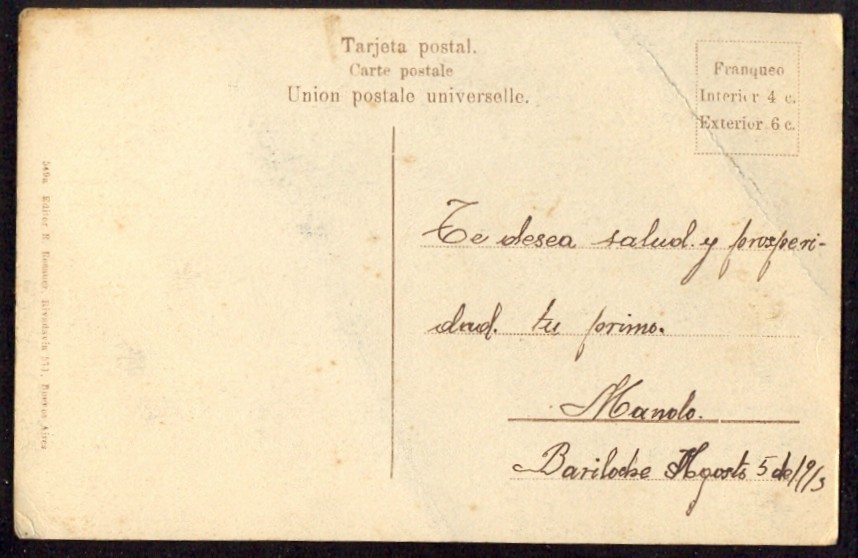 Tarjeta postal.
Carte postale
Union postale universelle.
Franqueo
Interior 4 c.
Exterior 6 c.
549a Editor R. Rosauer, Rivadavia 571, Buenos Aires
Te desea salud. y prosperi-
dad. tu primo.
Manolo.
Bariloche Agosto 5 de/913